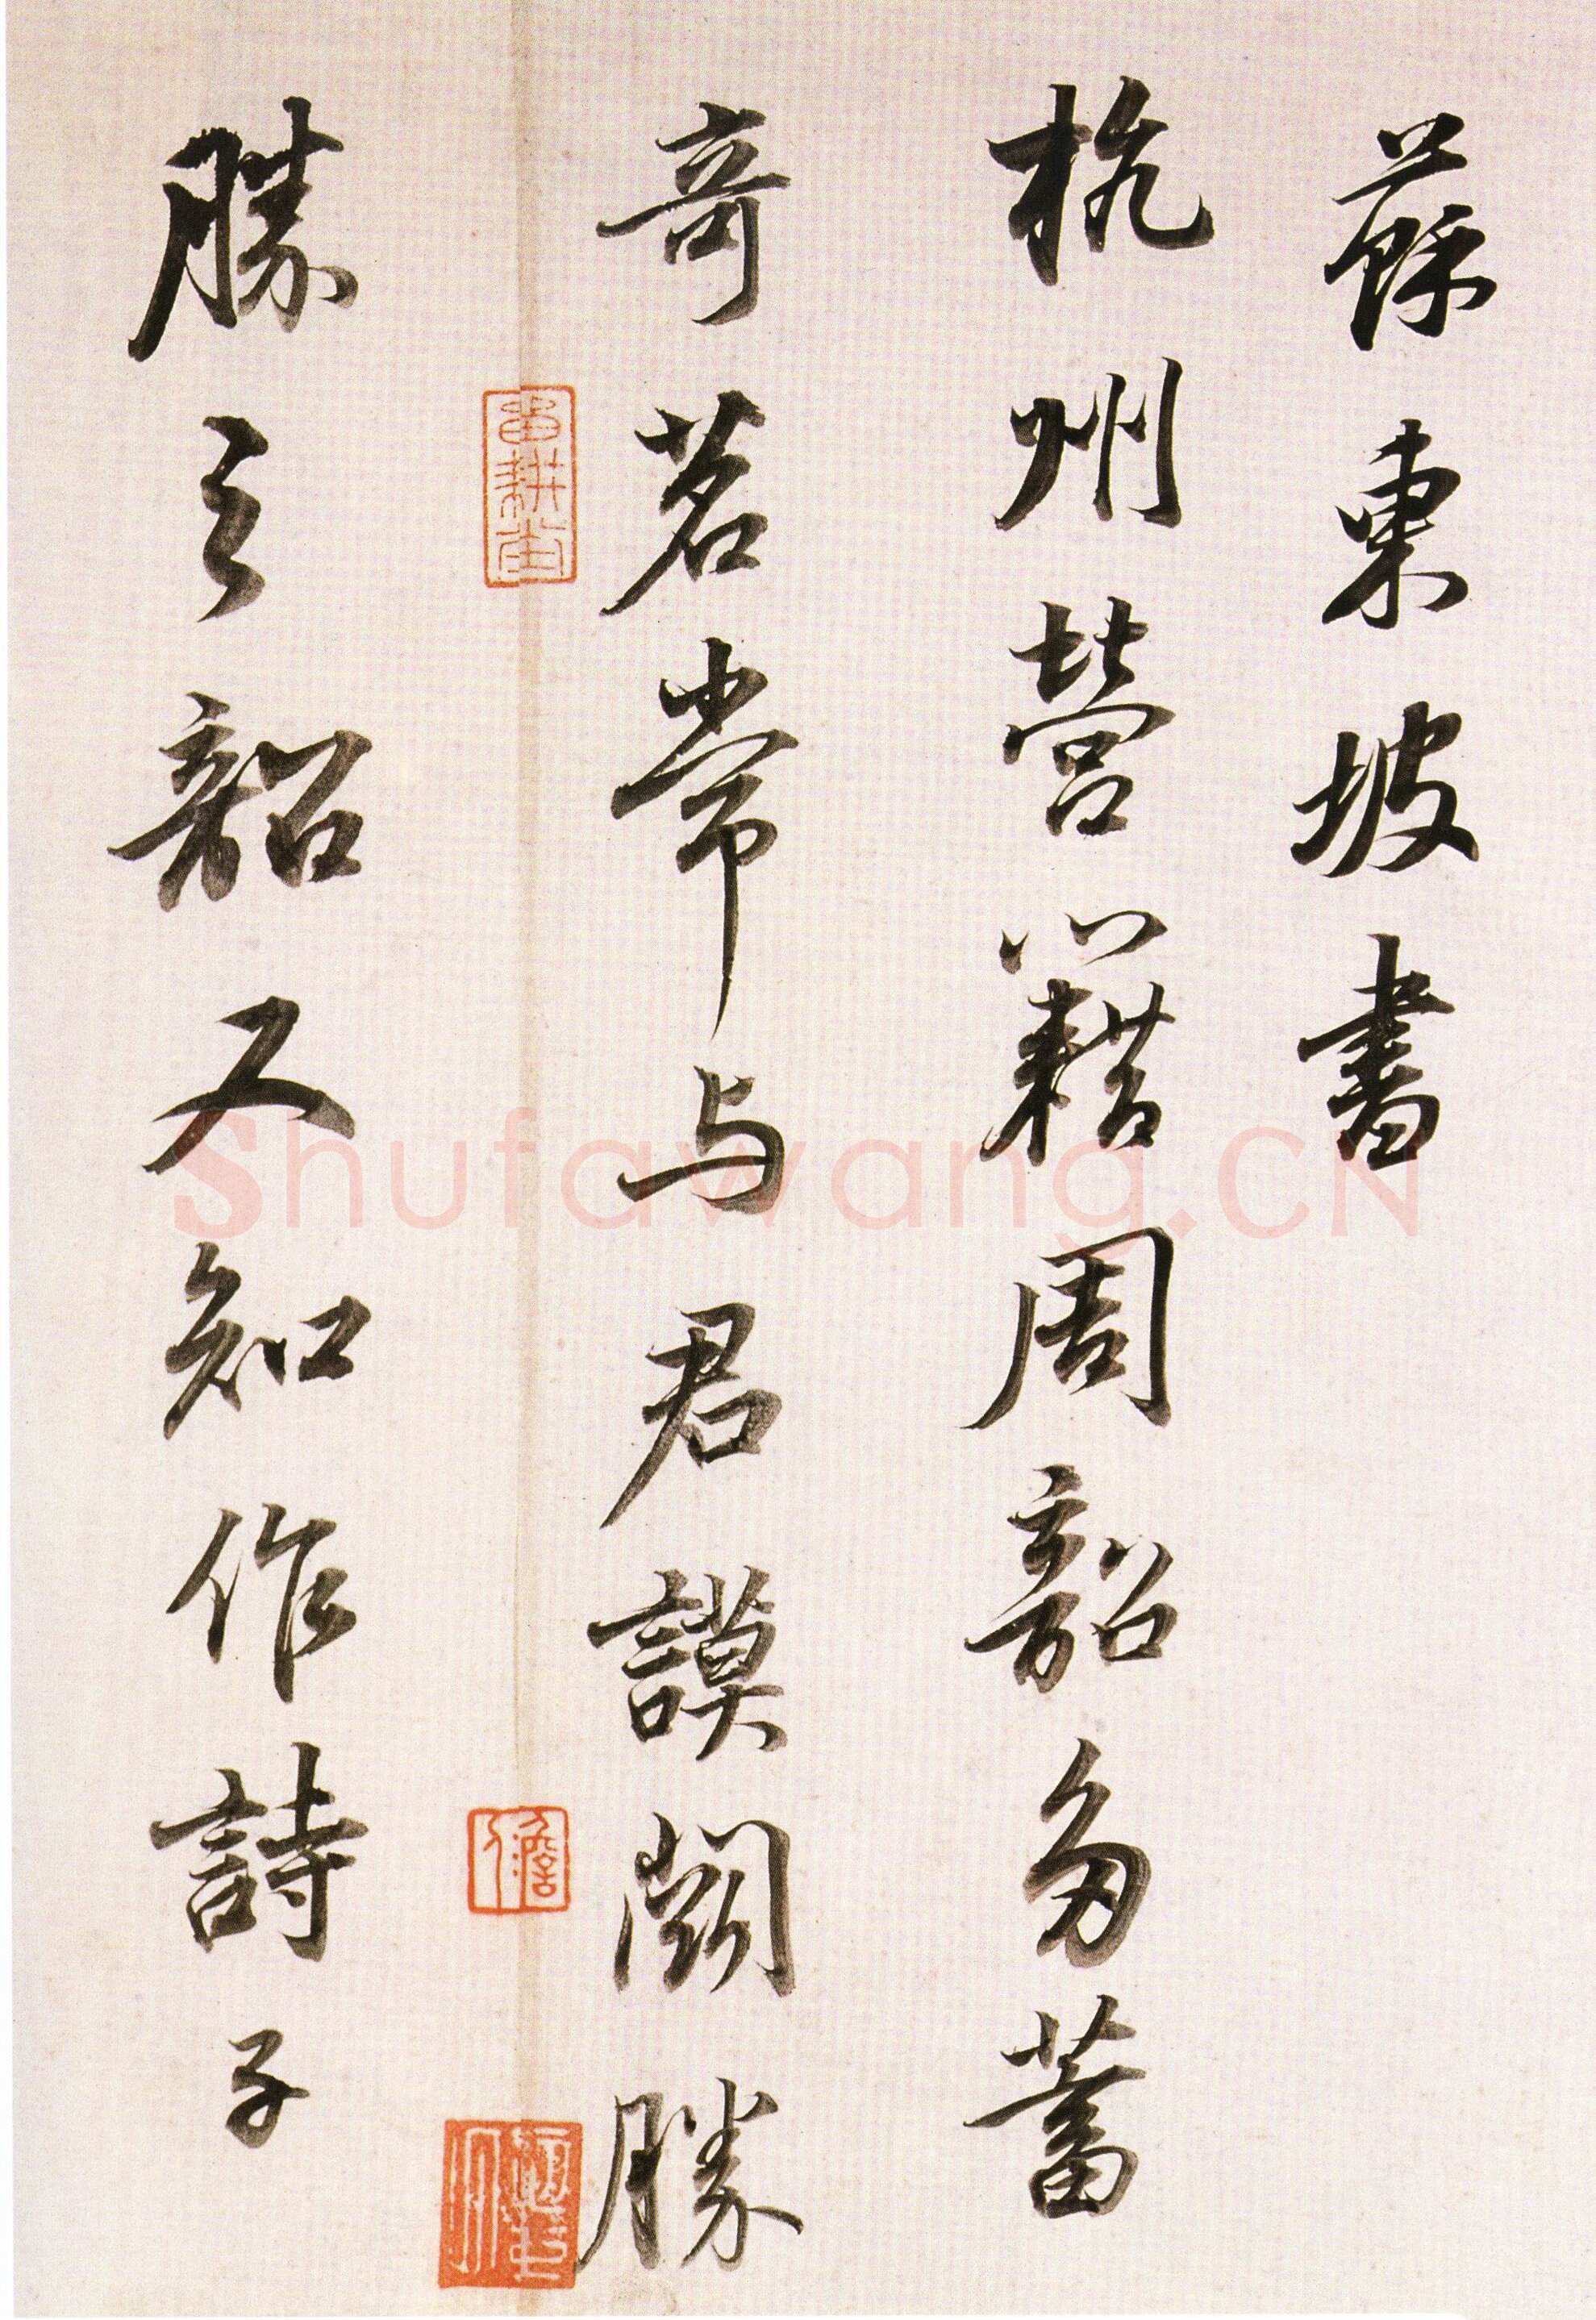 蘇東坡書
杭州營籍周韶多蓄
奇茗常与君謨鬪勝
勝之韶又知作詩子
Shufawang.CN